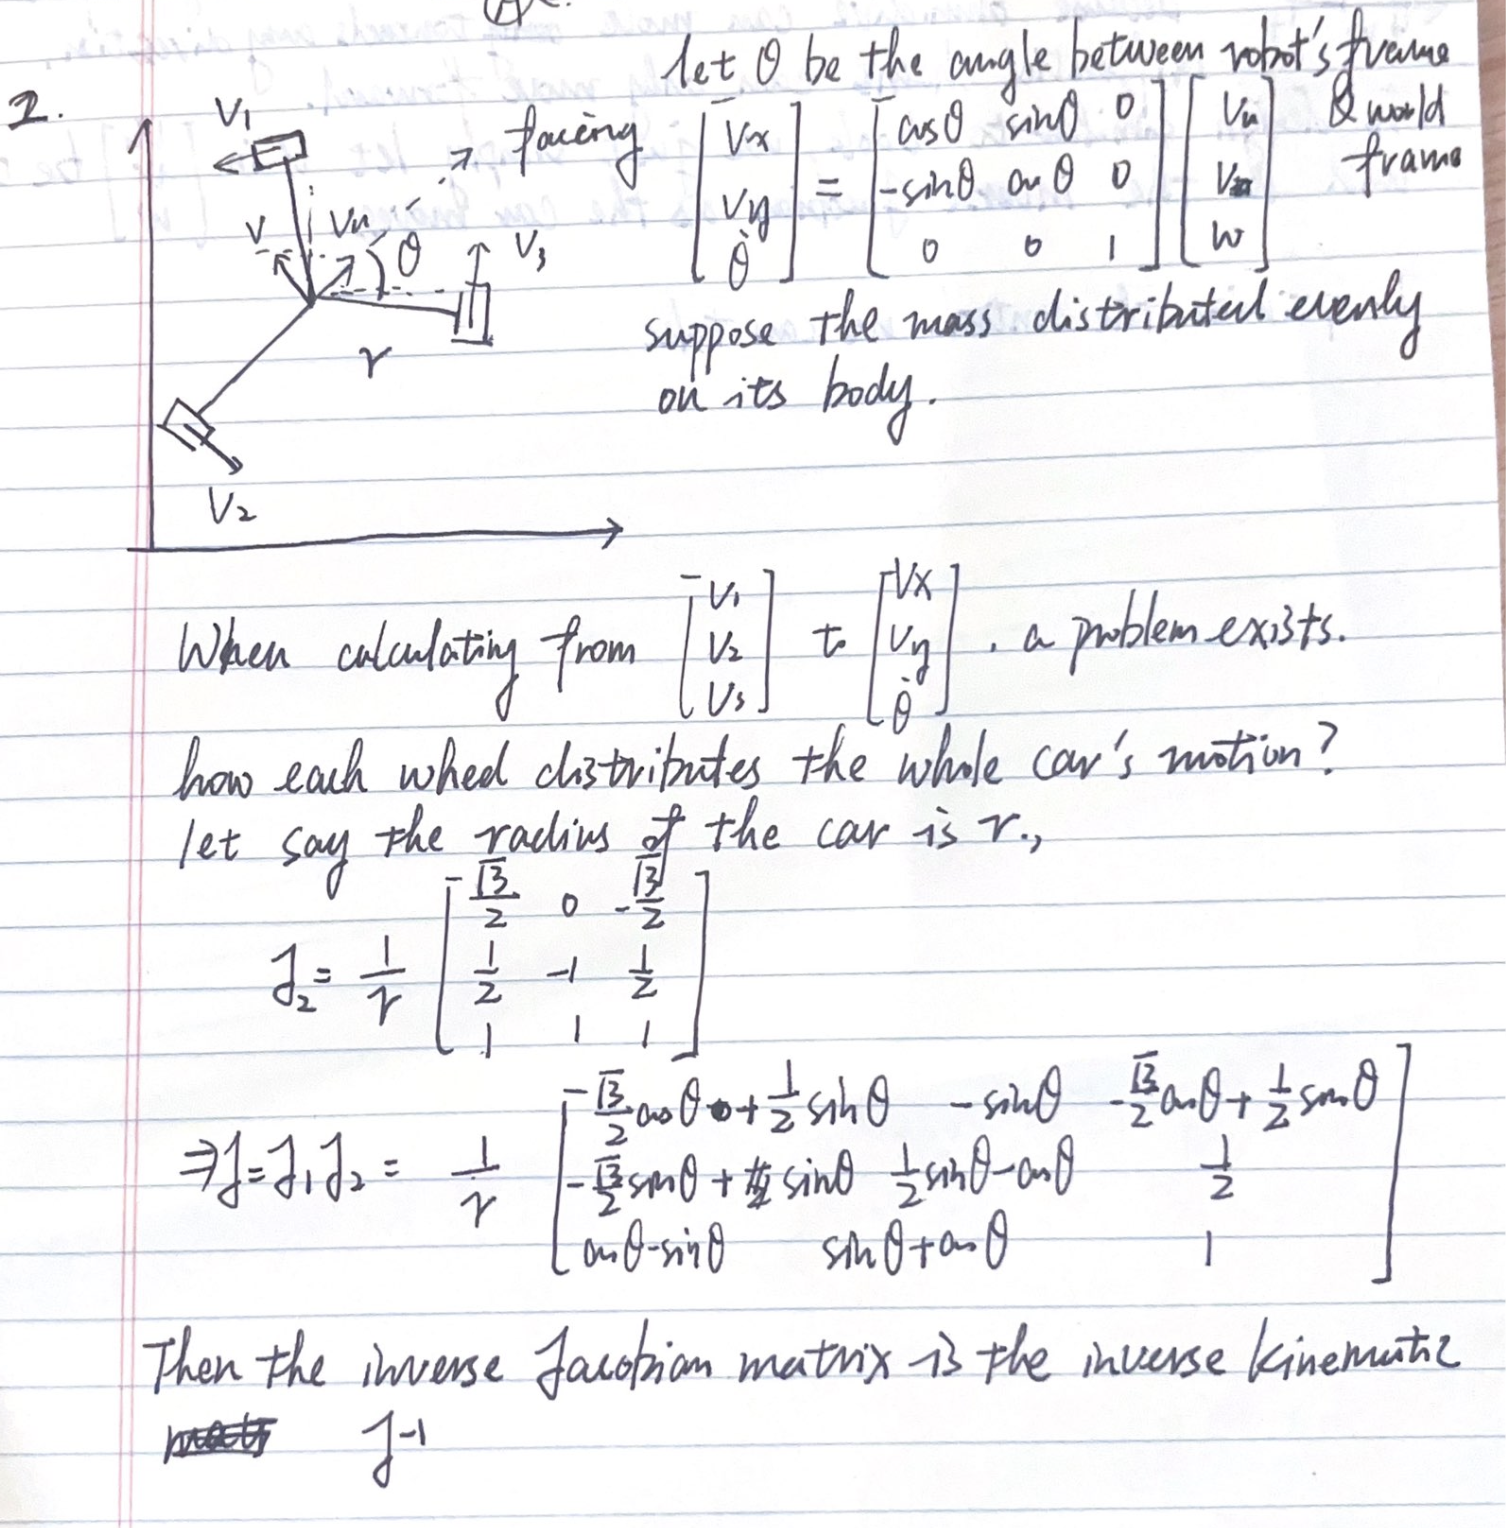 2.
let θ be the angle between robot's frame
& world
frame
V1
facing
[Vx Vy θ̇] = [cosθ sinθ 0; -sinθ cosθ 0; 0 0 1] [Vu V w]
V Vu θ V3
r
V2
suppose the mass distributed evenly
on its body.
When calculating from [V1 V2 V3] to [Vx Vy θ̇], a problem exists.
how each wheel distributes the whole car's motion?
let say the radius of the car is r.,
J2 = 1/r [√3/2 0 -√3/2; 1/2 -1 1/2; 1 1 1]
⇒J=J1J2 = 1/r [-√3/2 cosθ + 1/2 sinθ -sinθ -√3/2 cosθ + 1/2 sinθ; -√3/2 sinθ + sinθ 1/2 sinθ-cosθ 1/2; cosθ-sinθ sinθ+cosθ 1]
Then the inverse Jacobian matrix is the inverse kinematic
J-1